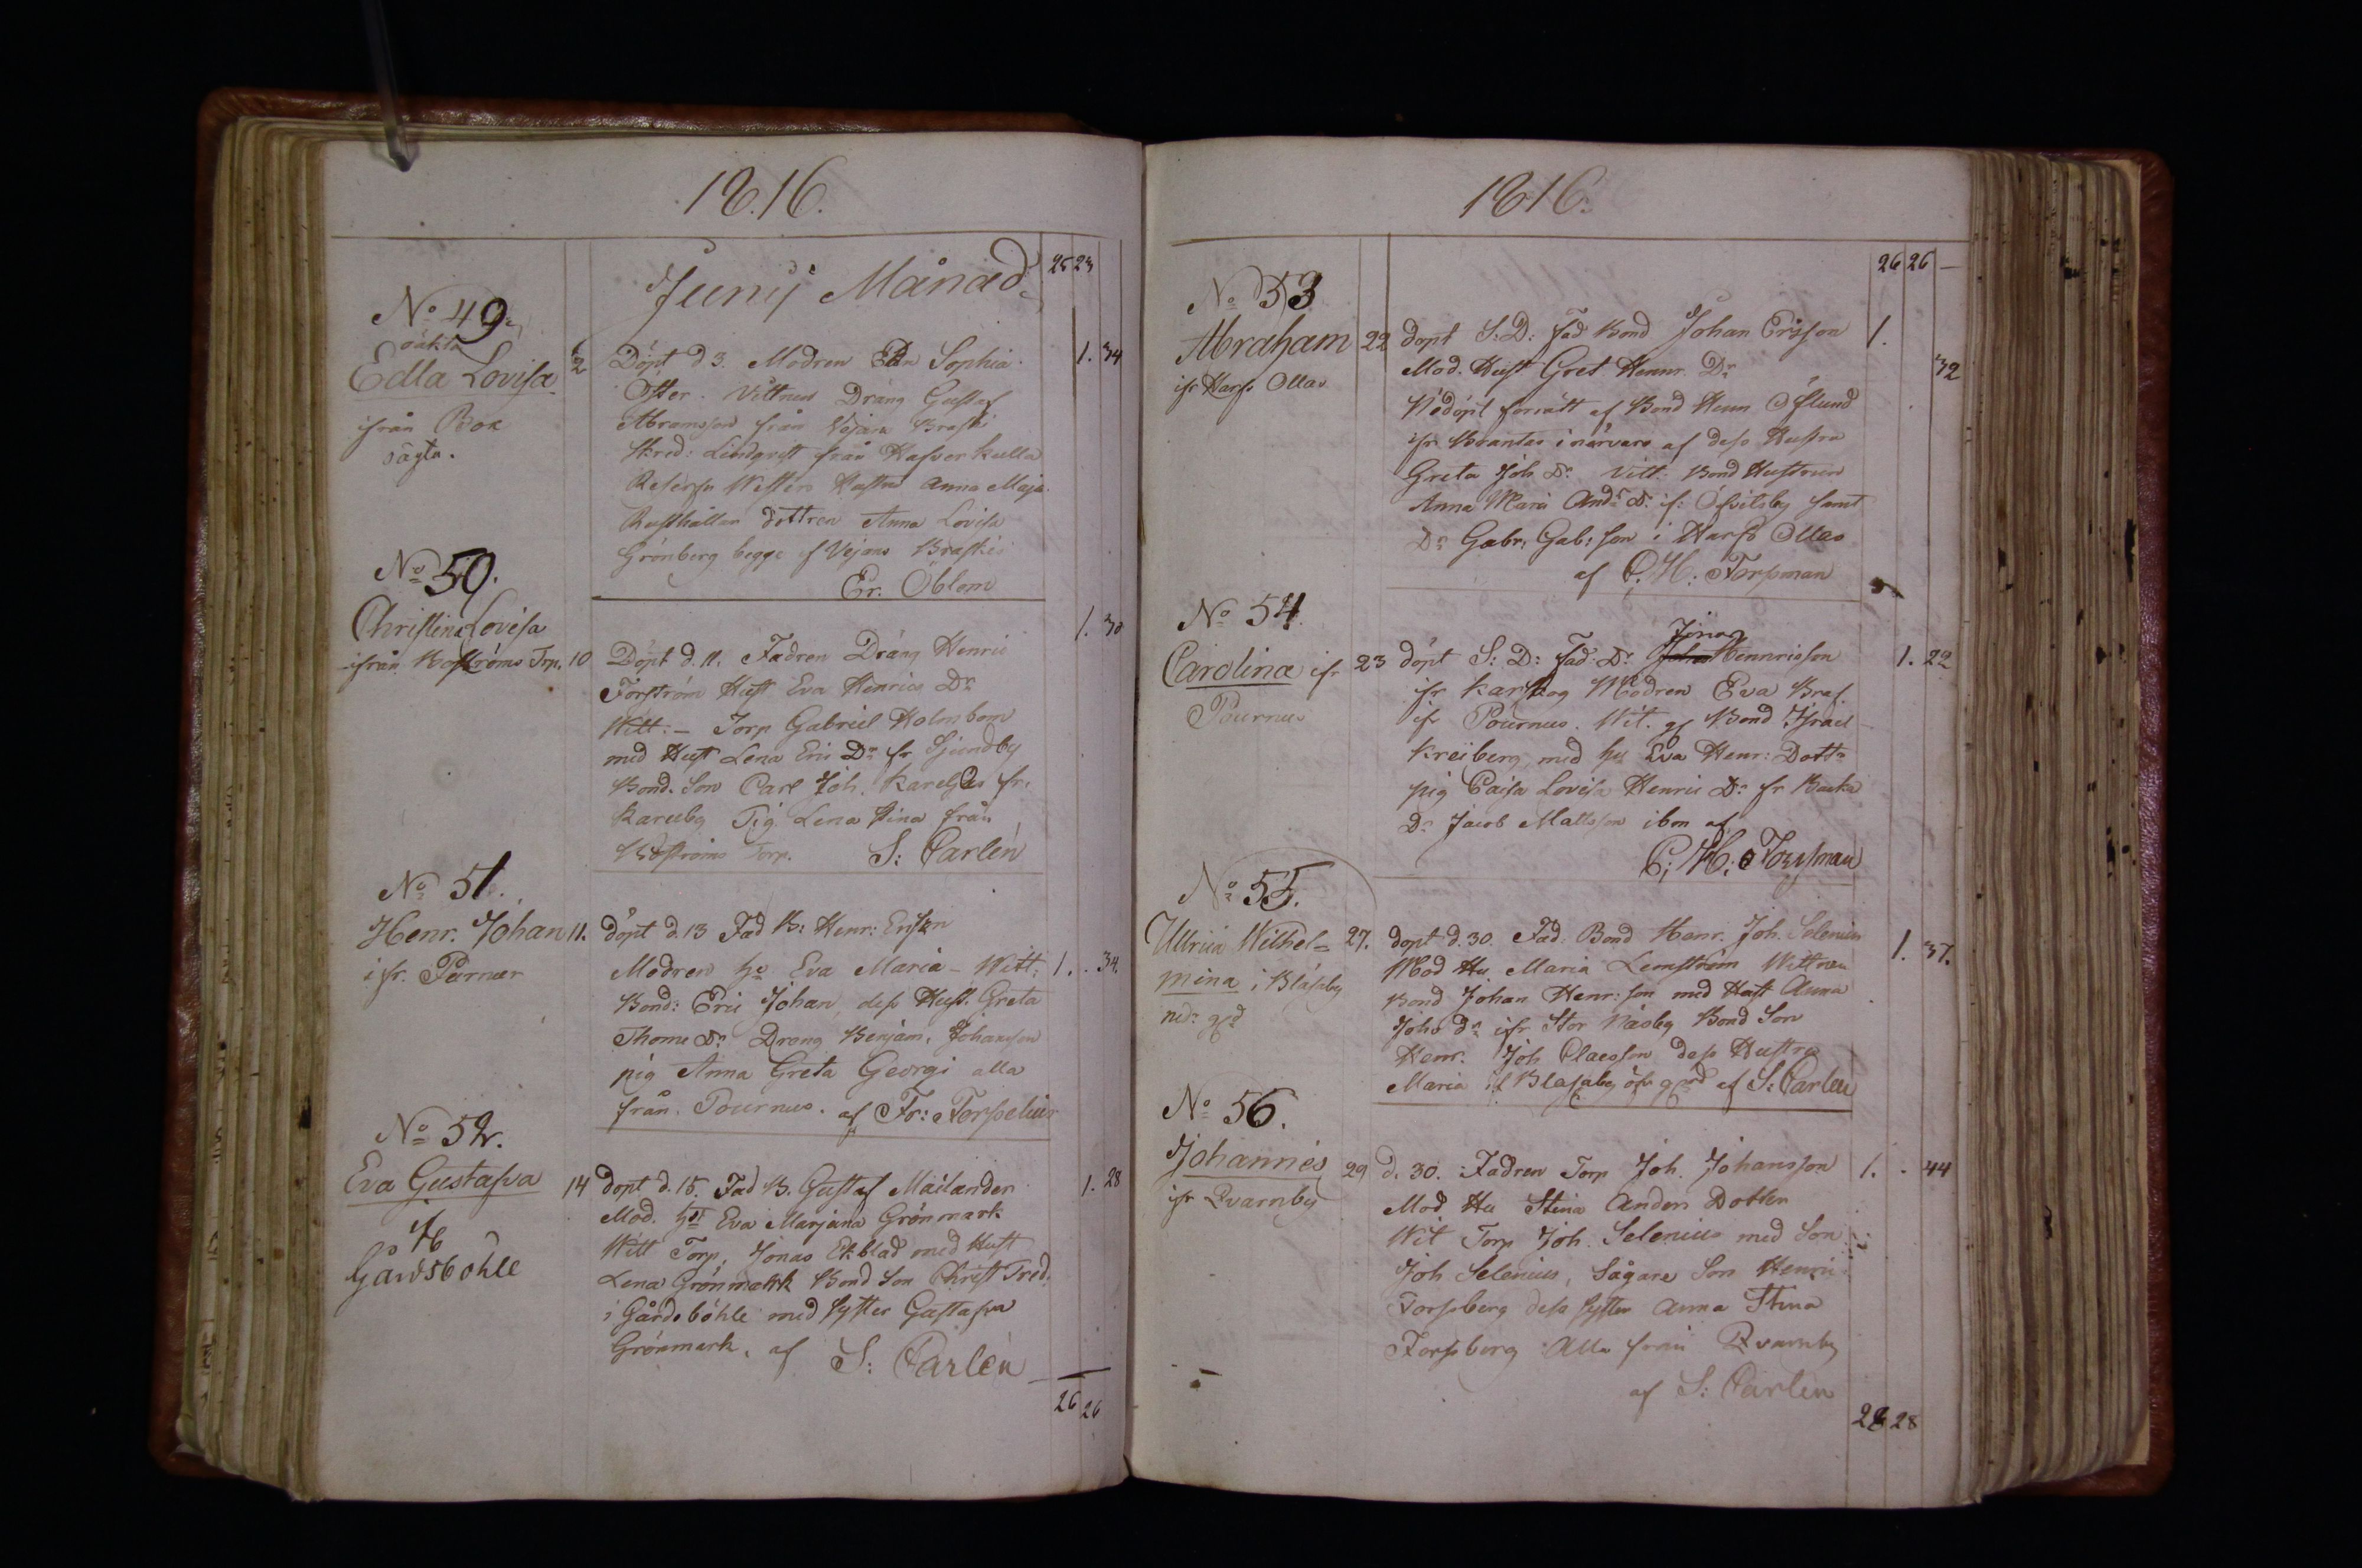 1816.
Junij Månad.
25 23
No 49.
oäkta
Edla Lovisa
ifrån Box
oägta.
2
Döpt d 3. Modren Sophia
Öster. Vittnen Dräng Gustaf
Abramsson från Vejans Braski
Skred: Lindqvist från Hafverkulla
Westers Hustru Anna Maja
Rusthållar dottren Anna Lovisa
Grönberg begge af Vejans Braskis
Er. Öblom
1. 34
No 50.
Christina Lovisa
ifrån Boströms Trp.
10
Döpt d. 11. Fadren Dräng Henric
Forström Hust Eva Henrics Dr
Witt: – Torp Gabriel Holmbom
med Hust Lena Eric Dr fr Sjundby
Bond. Son Carl Joh. fr.
Karuby Pig. Lena Stina från
Boströms Torp. S: Carlén
1. 30
No 51.
Henr. Johan
ifr. Pårner
11.
döpt d. 13 Fad B: Henr: Ericson
Modren hu Eva Maria – Witt:
Bond: Eric Johan, dess Hust. Greta
Thome Dr Dreng Benjam. Johansson
pig Anna Greta Georgi alla
från. Pournus. af Fr: Forselius
1. . 34.
No 52.
Eva Gustafva
if
Gårdsböhle
14
döpt d. 15. Fad B. Gustaf Mailander
Mod. hu Eva Marjana Grönmark
Witt Torp. Jonas Ekblad med Hust
Lena Grönmark Bond Son Christ Fred.
i Gårdsböhle med syster Gustafva
Grönmark. af S: Carlén
1. 28
26 26
1816.
26 26 –
No 53
Abraham
ifr Harfs Ollas
22
döpt S: D: Fad Bond Johan Ersson
Mod. Hust Gret Henr. Dr
Nödöpt förrätt af Bond Henr Öflund
ifr Brantas i närvaro af dess Hustru
Greta Joh Dr Vitt: Bond Hustrun
Anna Maria Andr Dr if: Öfvitsby samt
Dr Gabr. Gab: son i Harfs Ollas
af C. H. Forsman
1. 32
No 54.
Carolina ifr
Pournus
23
döpt S: D: Fad: Dr Jonas Hennricson
ifr Karskog Modren Eva Braf.
if Pournus. Wit. gf Bond Israel
Kreiberg, med hu Eva Henr: Dottr
pig Caisa Lovisa Henric Dr fr Backa
Dr Jacob Mattsson ibm af
C; H; Forsman
1. 22
No 55.
Ullrica Wilhel=
mina i Blåsaby
nedr gård
27.
döpt d. 30. Fad: Bond Henr. Joh. Selenius
Mod Hu Maria Lemström Wittnen
Bond Johan Henr: son med Hust Anna
Johs dr ifr Stor Näsby Bond Son
Henr. Joh Claesson dess Hustru
Maria if Blåsaby öfr gård af S: Carlén
1. 37.
No 56.
Johannes
ifr Qvarnby
29
d. 30. Fadren Torp Joh. Johansson
Mod Hu Stina Anders Dotter
Wit Torp Joh. Selenius med Son
Joh Selenius, Sågare Son Henric
Forssberg dess syster Anna Stina
Forssberg Alla från Qvarnby
af S: Carlén
1. . 44
28 28